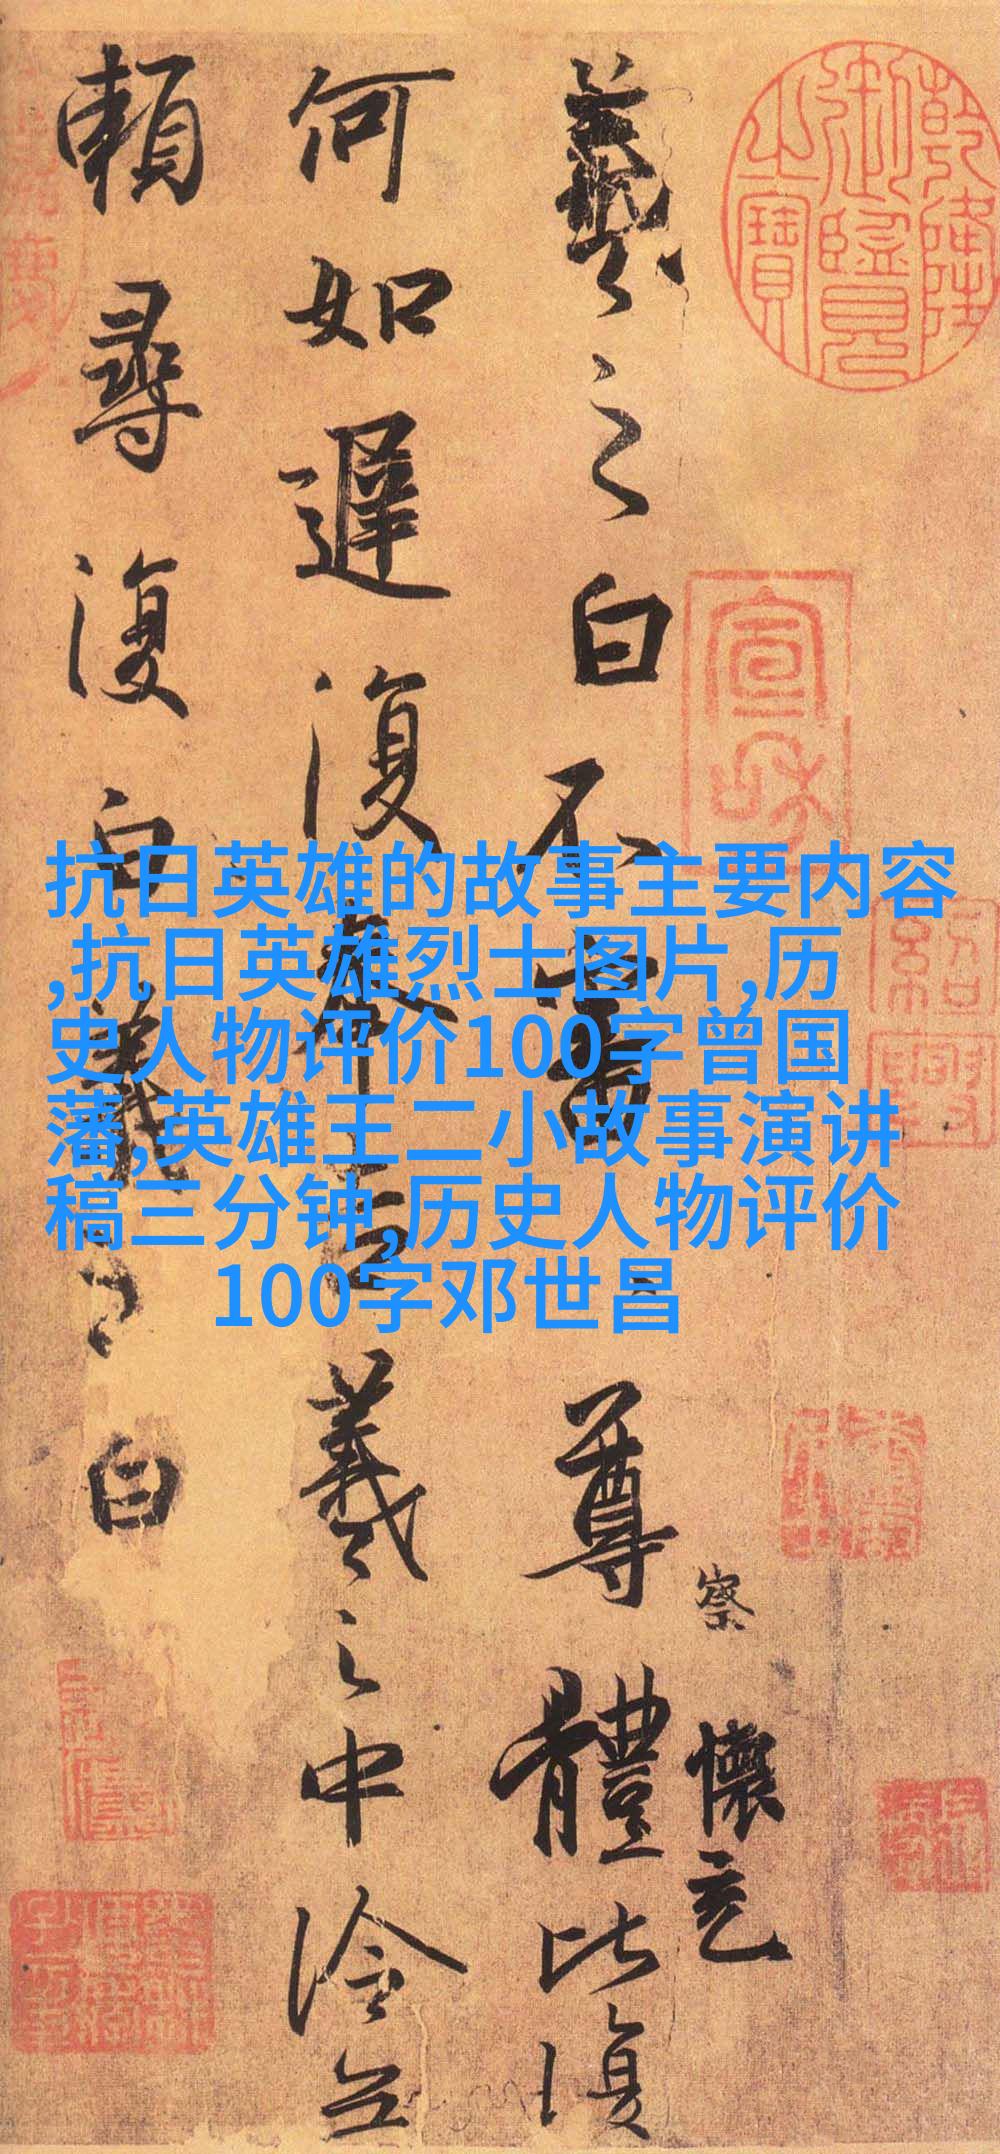 乾隆御覽之寶
宣和
察
懷充
羲之白不審尊體比復
何如遲復奉告羲之中冷無
頼尋復白羲之白
抗日英雄的故事主要内容
,抗日英雄烈士图片,历
史人物评价100字曾国
藩,英雄王二小故事演讲
稿三分钟,历史人物评价
100字邓世昌